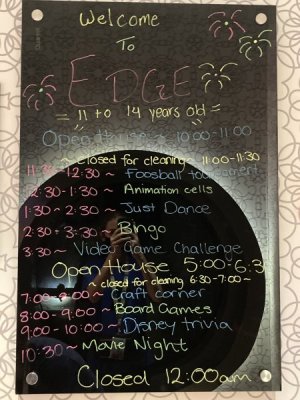 Welcome
To
EDGE
= 11 to 14 years old =
Open House ~ 10:00-11:00
~ Closed for cleaning 11:00-11:30
11:30-12:30 ~ Foosball tournament
12:30-1:30 ~ Animation cells
1:30-2:30 ~ Just Dance
2:30-3:30 ~ Bingo
3:30 ~ Video Game Challenge
Open House 5:00-6:3
~ closed for cleaning 6:30-7:00 ~
7:00-8:00 ~ Craft corner
8:00-9:00 ~ Board Games
9:00-10:00 ~ Disney trivia
10:30 ~ Movie Night
Closed 12:00am